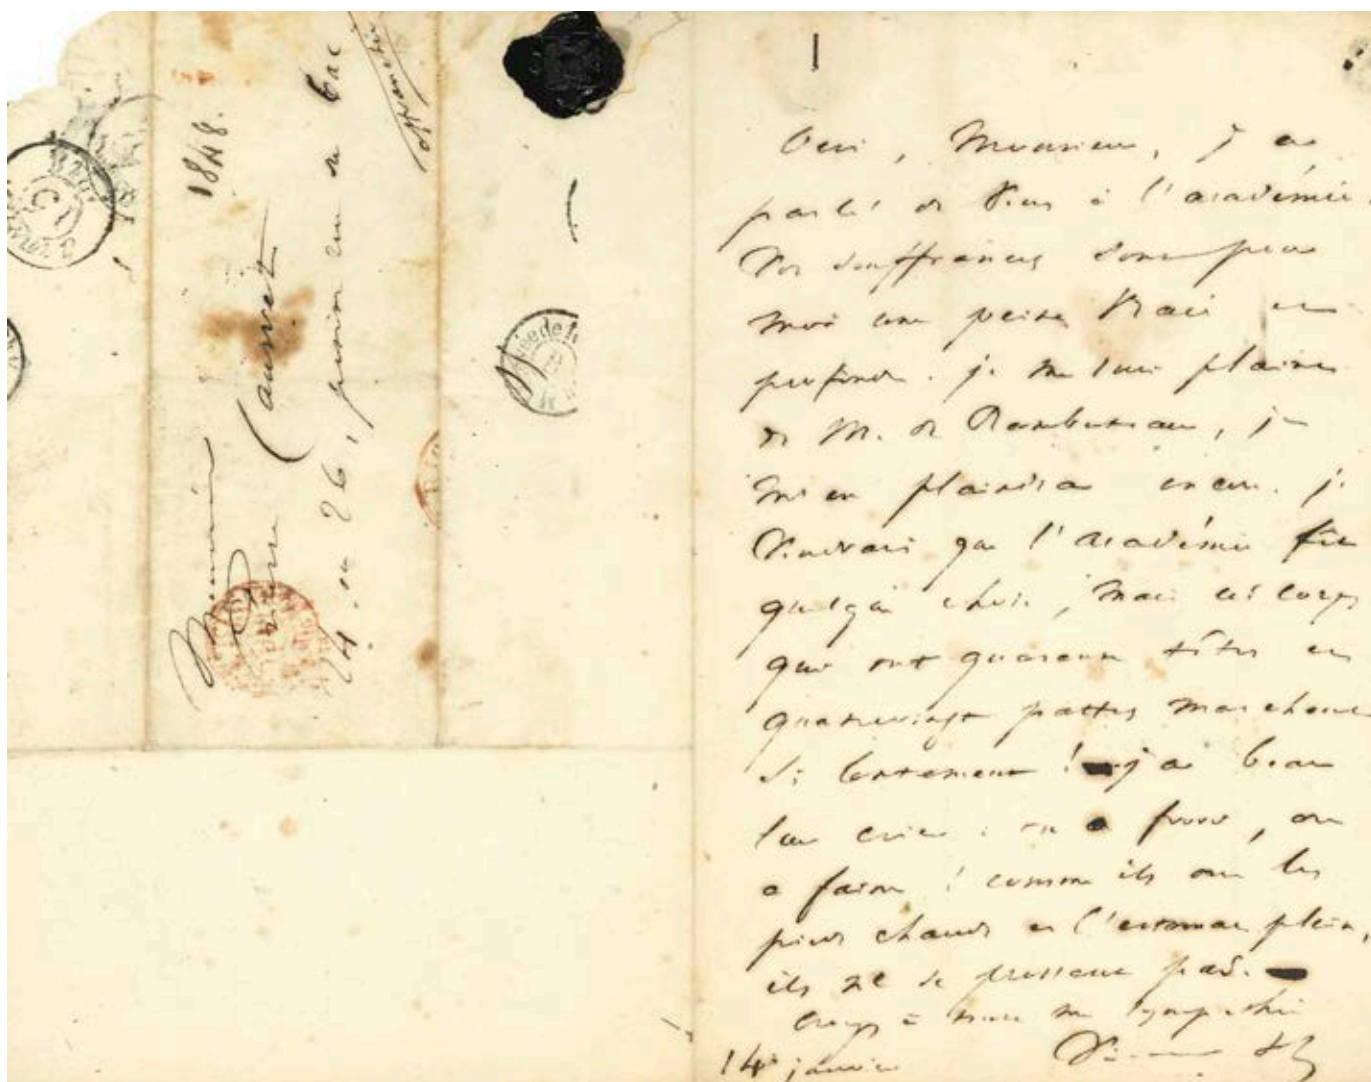 1848.
Monsieur
Pierre Cauvet
24 ou 26, passage du bac
Oui, Monsieur, j'ai
parlé de vous à l'académie.
Vos souffrances sont pour
moi une peine vraie et
profonde. je me suis plaint
de M. de Rambuteau, je
m'en plaindrai encore. je
voudrais que l'académie fît
quelque chose, mais ces corps
qui ont quarante têtes et
quatrevingt pattes marchent
si lentement ! j'ai beau
leur crier : on a froid, on
a faim ! comme ils ont les
pieds chauds et l'estomac plein,
ils ne se pressent pas.
Croyez à toute ma sympathie
Victor H
14 janvier